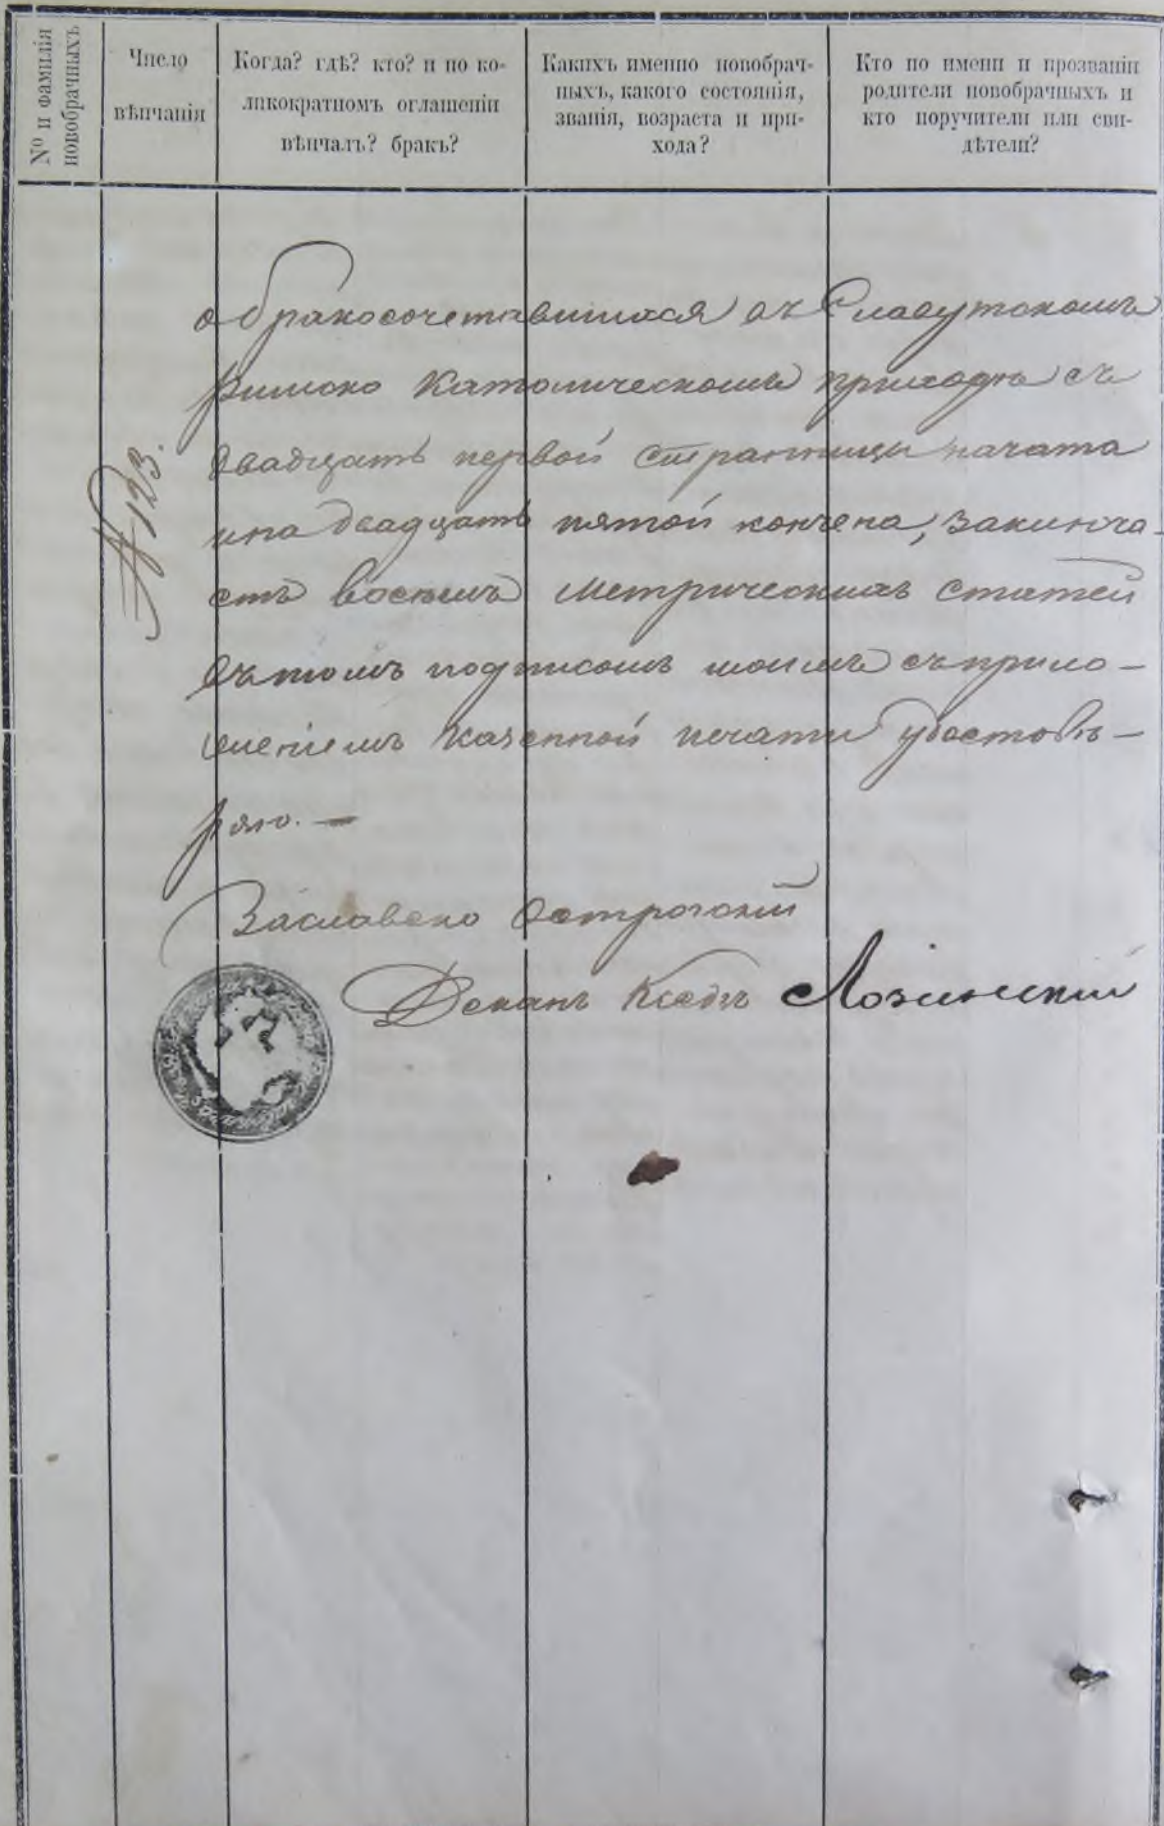 № и фамилія
новобрачныхъ
Число
вѣнчанія
Когда? гдѣ? кто? и по ко-
ликократномъ оглашеніи
вѣнчалъ? бракъ?
Какихъ именно новобрач-
ныхъ, какого состоянія,
званія, возраста и при-
хода?
Кто по имени и прозваніи
родители новобрачныхъ и
кто поручители или сви-
дѣтели?
№ 123.
о бракосочетавшихся въ Славутскомъ
Римско Католическомъ приходѣ съ
двадцать первой страницы начата
и на двадцать пятой кончена, заключа-
етъ восемь метрическихъ статей
въ томъ подписомъ моимъ съ прило-
женіемъ казенной печати удостовѣ-
ряю. —
Заславско Острогскій
Деканъ Ксендзъ Лозинскій